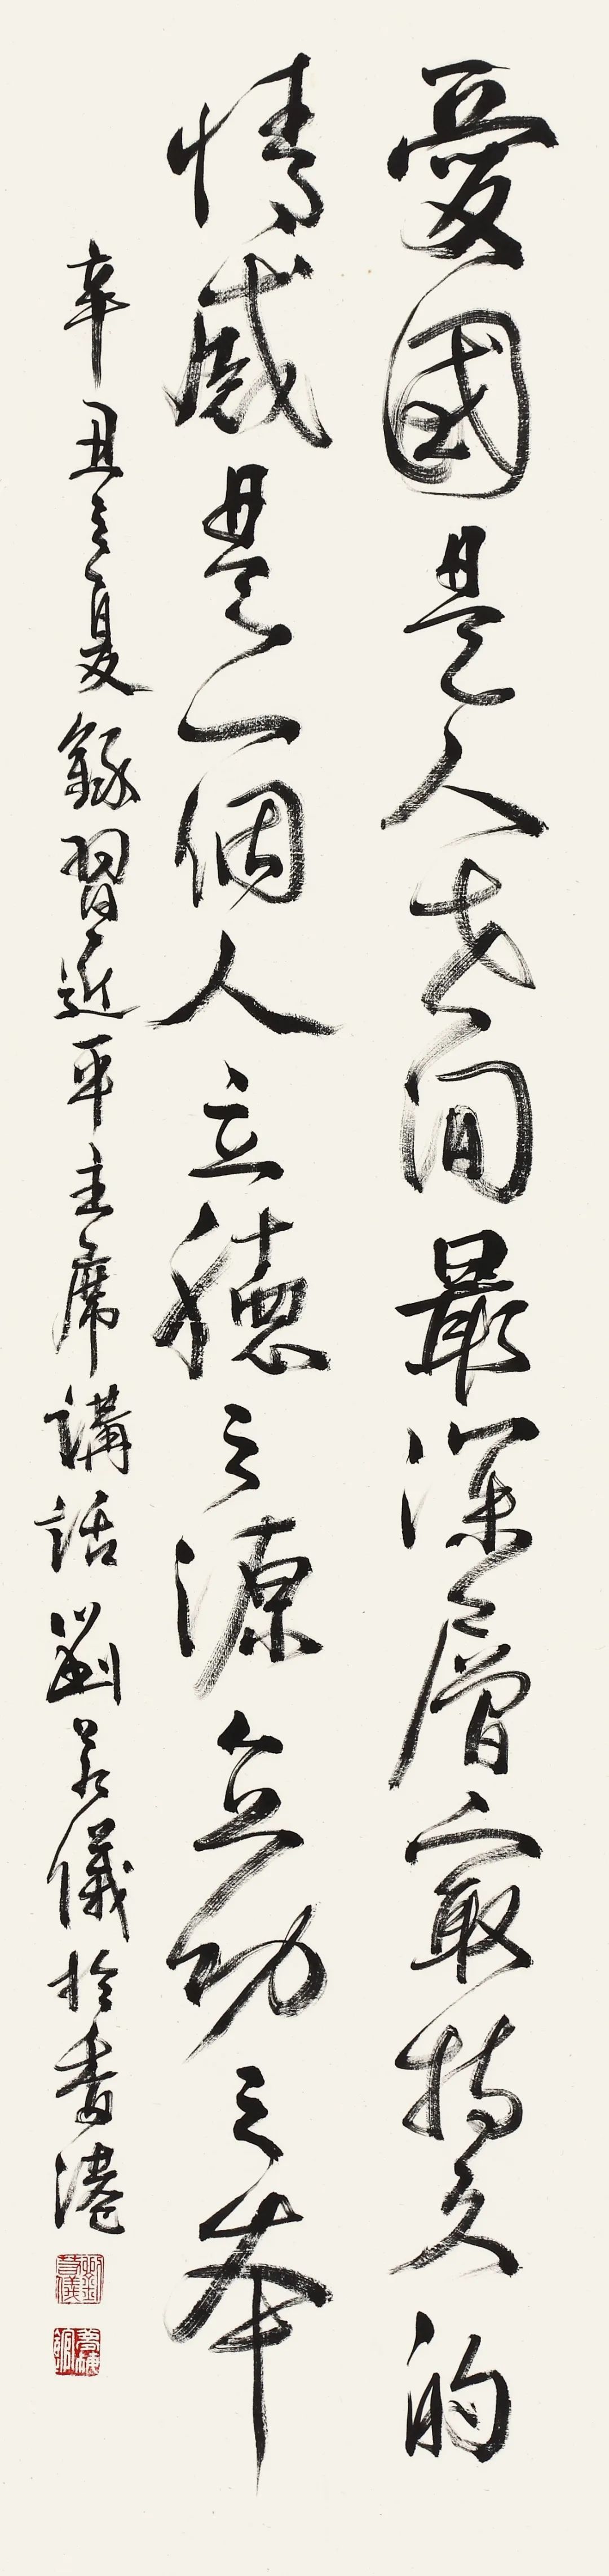 愛國是人世间最深層最持久的
情感是一個人立德之源立功之本
辛丑之夏錄習近平主席講話劉若儀於香港